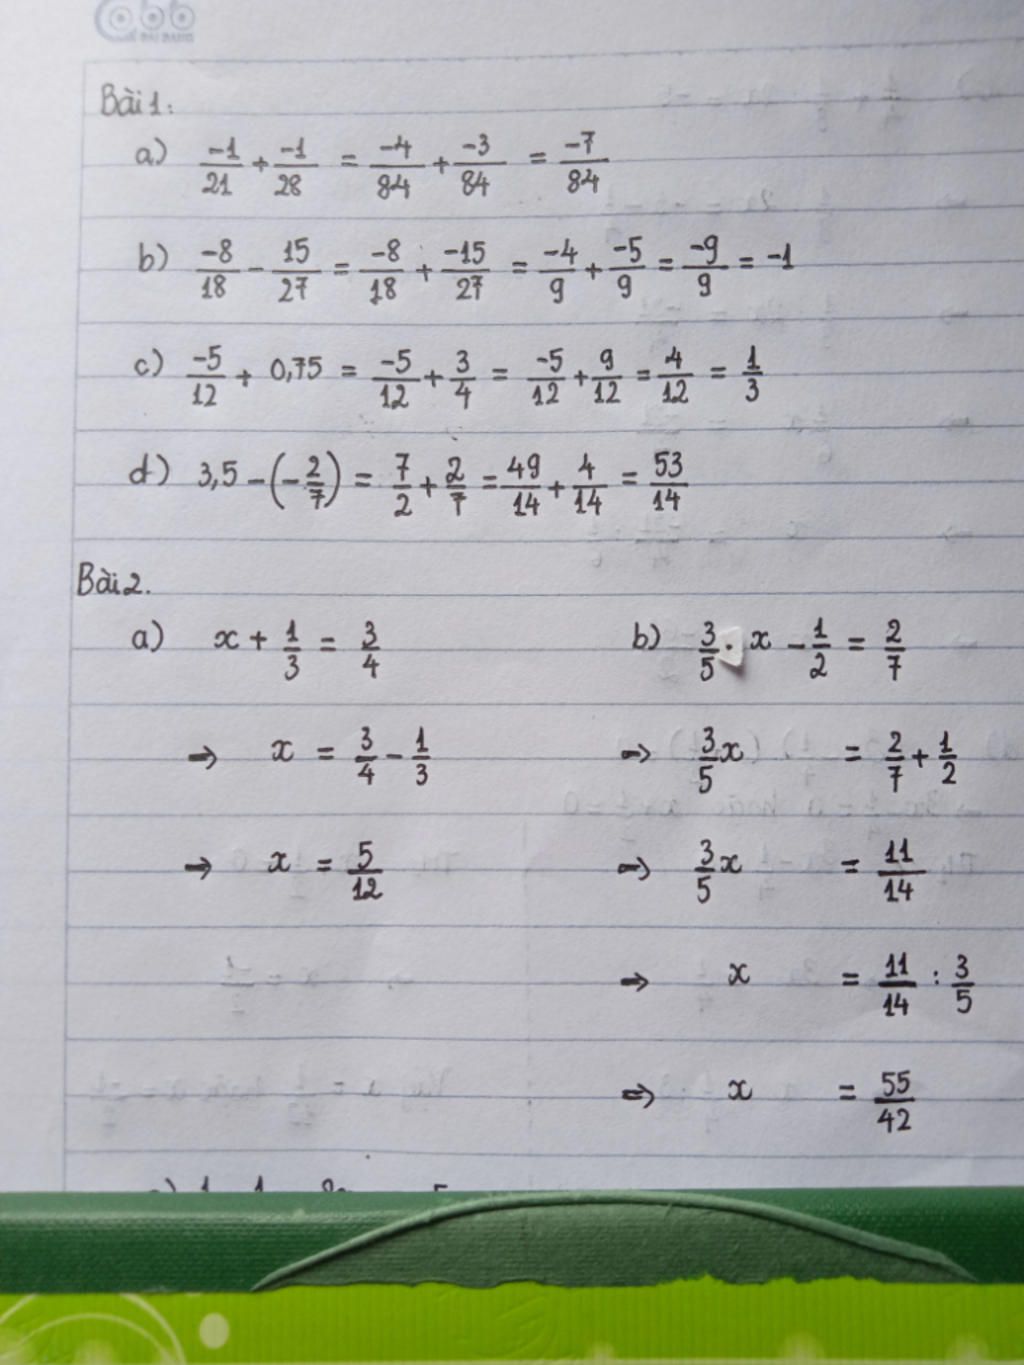 Bài 1:
a) -1/21 + -1/28 = -4/84 + -3/84 = -7/84
b) -8/18 - 15/27 = -8/18 + -15/27 = -4/9 + -5/9 = -9/9 = -1
c) -5/12 + 0,75 = -5/12 + 3/4 = -5/12 + 9/12 = 4/12 = 1/3
d) 3,5 - (-2/7) = 7/2 + 2/7 = 49/14 + 4/14 = 53/14
Bài 2.
a) x + 1/3 = 3/4
⇒ x = 3/4 - 1/3
⇒ x = 5/12
b) 3/5 . x - 1/2 = 2/7
⇒ 3/5 x = 2/7 + 1/2
⇒ 3/5 x = 11/14
⇒ x = 11/14 : 3/5
⇒ x = 55/42